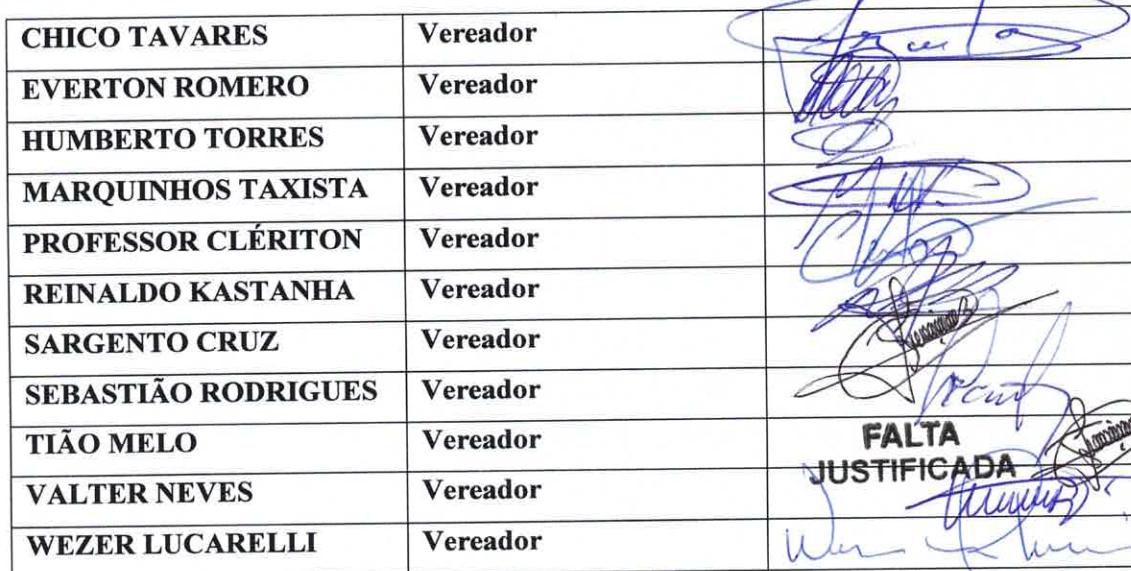 CHICO TAVARES Vereador
EVERTON ROMERO Vereador
HUMBERTO TORRES Vereador
MARQUINHOS TAXISTA Vereador
PROFESSOR CLÉRITON Vereador
REINALDO KASTANHA Vereador
SARGENTO CRUZ Vereador
SEBASTIÃO RODRIGUES Vereador
TIÃO MELO Vereador FALTA
JUSTIFICADA
VALTER NEVES Vereador
WEZER LUCARELLI Vereador